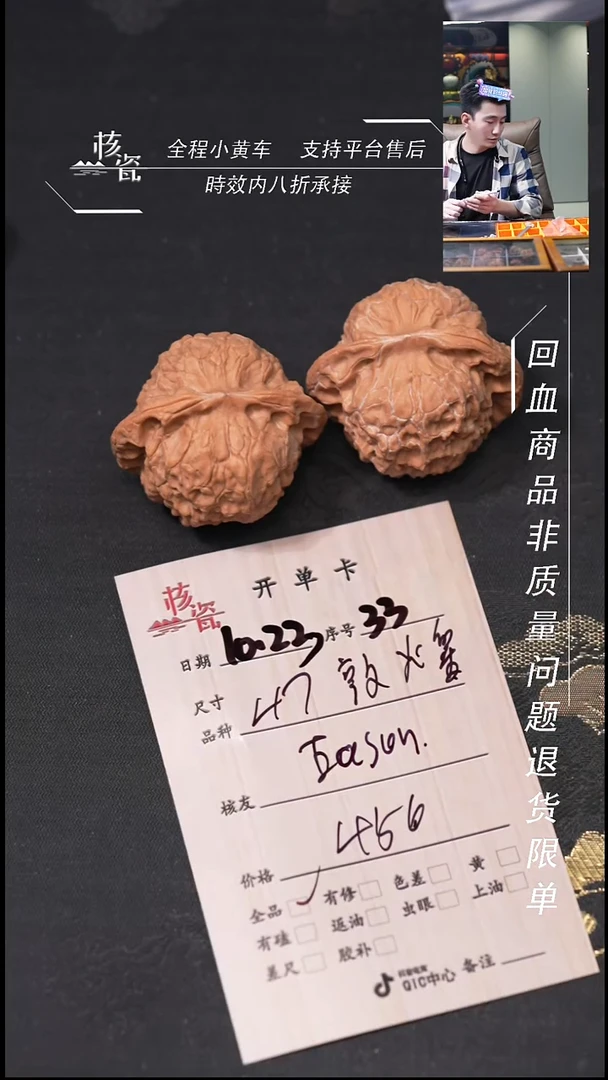 核瓷
全程小黄车 支持平台售后
時效内八折承接
回血商品非质量问题退货限单
核瓷
开单卡
日期 10.23 序号 33
尺寸
品种 47 敦火
核友 Eason.
价格 466
全品 有修 色差 黄
有磕 返油 虫眼 上油
差尺 胶补
抖音电商
QIC中心 备注